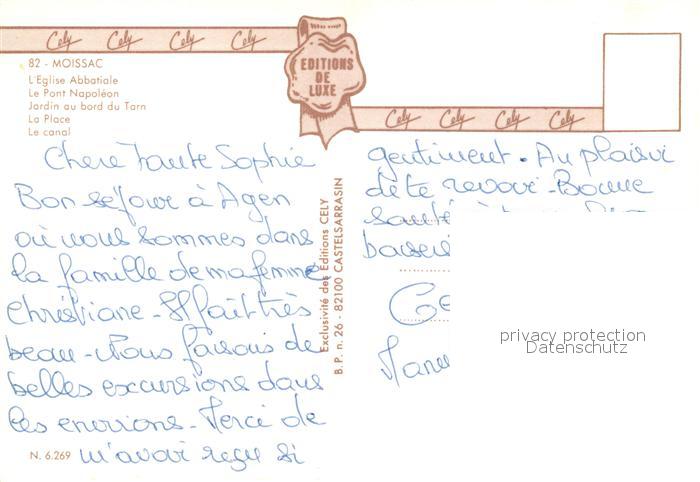 Cely Cely Cely Cely
EDITIONS
DE
LUXE
Cely Cely Cely Cely
82 - MOISSAC
L'Eglise Abbatiale
Le Pont Napoléon
Jardin au bord du Tarn
La Place
Le canal
Chère Tante Sophie
Bon séjour à Agen
où nous sommes dans
la famille de ma femme
Christiane - Il fait très
beau - Nous faisons de
belles excursions dans
les environs - Merci de
m'avoir reçu si
N. 6.269
Exclusivité des Editions CELY
B.P. n. 26 - 82100 CASTELSARRASIN
gentiment. Au plaisir
de te revoir - Bonne
santé
privacy protection
Datenschutz